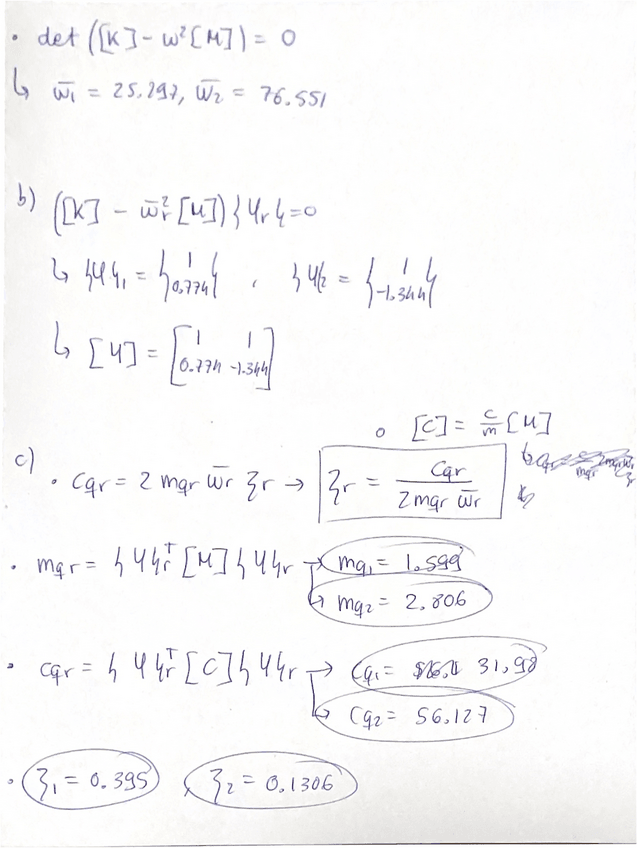 • det ([K] - ω²[M]) = 0
↳ ω̄₁ = 25.297, ω̄₂ = 76.551
b) ([K] - ω̄r²[M]){Ψr} = 0
↳ {Ψ}₁ = {1 0.774} , {Ψ}₂ = {1 -1.344}
↳ [Ψ] = [1 1 0.774 -1.344]
o [C] = c/m [M]
c) • Cqr = 2 mqr ω̄r ξr → ξr = Cqr / 2 mqr ω̄r
• mqr = {Ψ}rᵀ [M] {Ψ}r → mq₁ = 1.599
↳ mq₂ = 2.806
• cqr = {Ψ}rᵀ [C] {Ψ}r → Cq₁ = 31.98
↳ Cq₂ = 56.127
• ξ₁ = 0.395 , ξ₂ = 0.1306